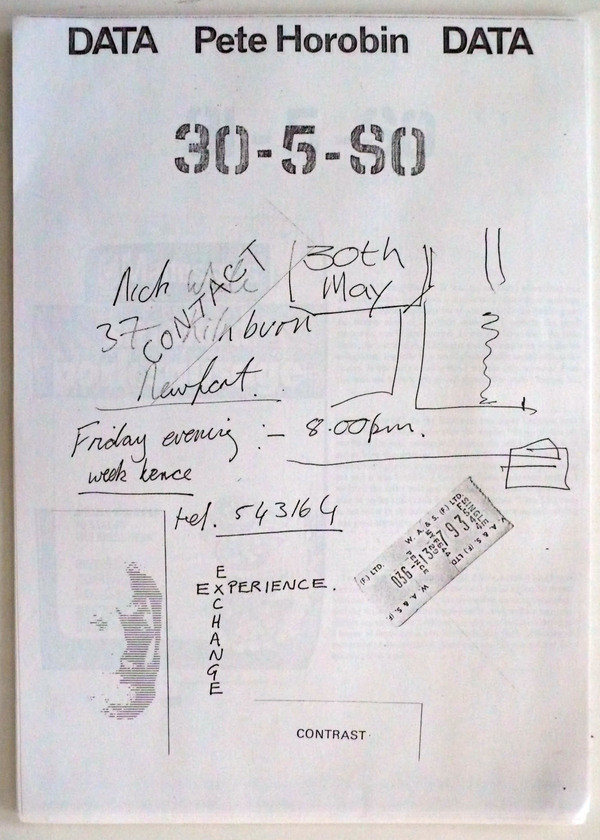 DATA Pete Horobin DATA
30-5-80
CONTACT
30th
May
Nick
37
Newport.
Friday evening :- 8.00pm.
week hence
tel. 543164
EXPERIENCE.
EXCHANGE
CONTRAST
W. A. & S. (F) LTD.
SINGLE